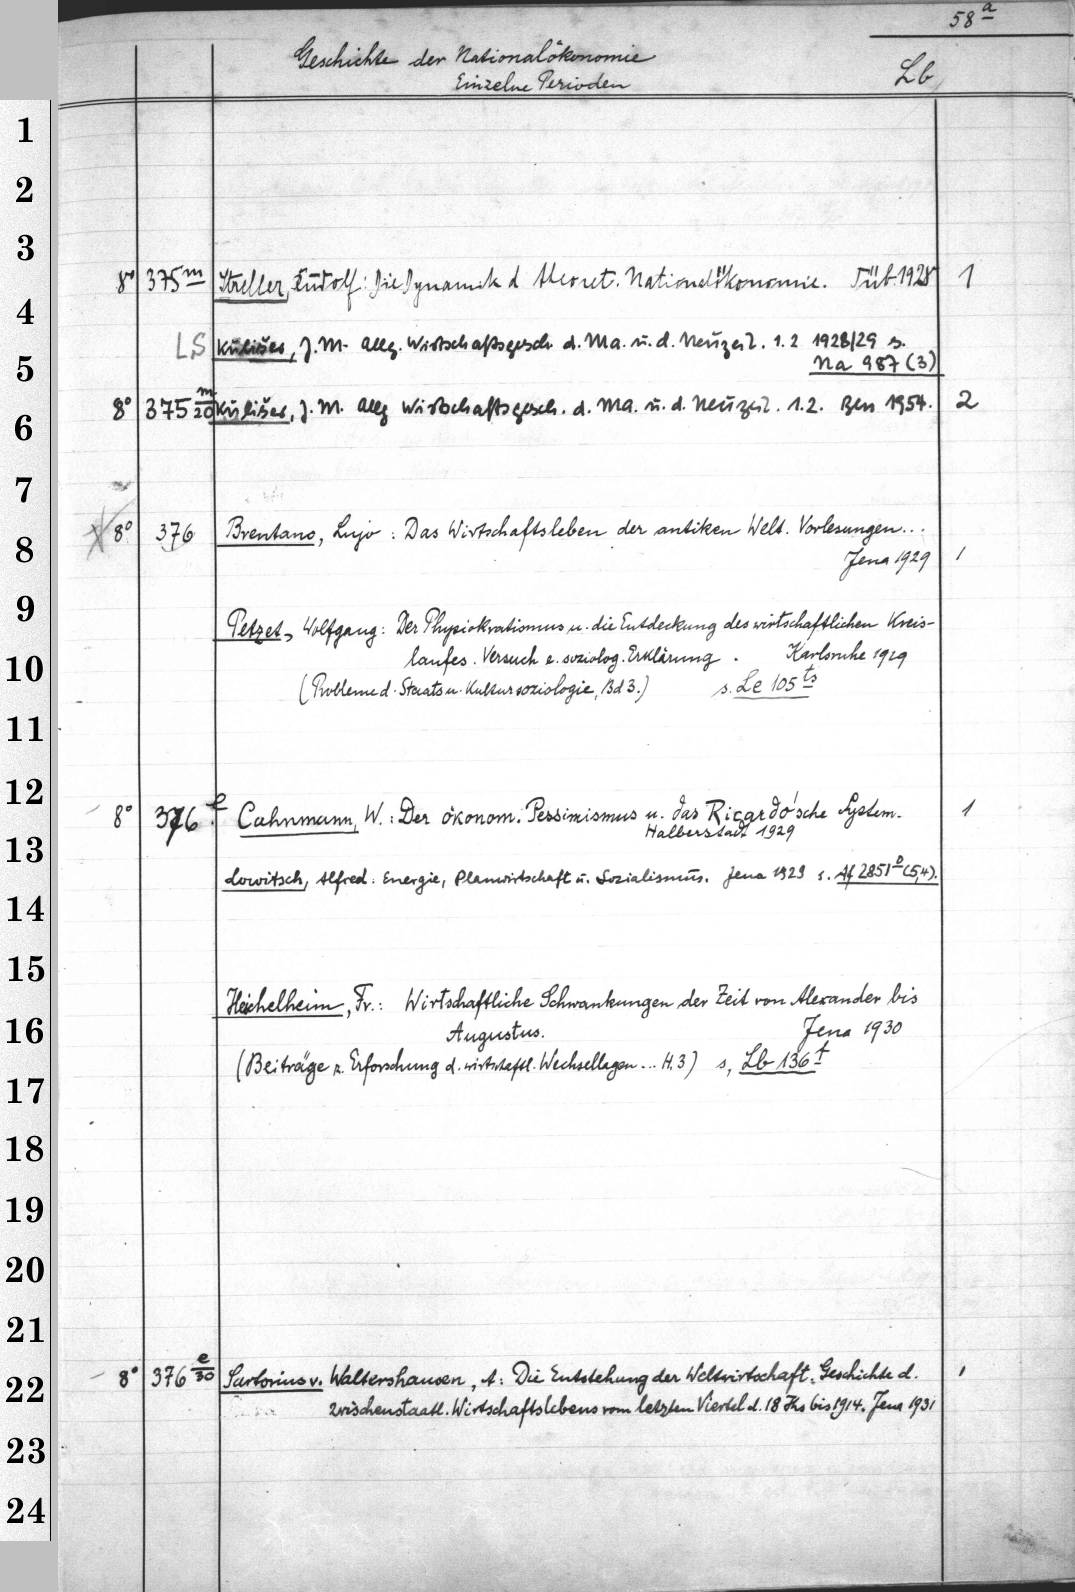 58ª
Geschichte der Nationalökonomie Lb
Einzelne Perioden
1
2
3
8° 375 m Streller, Rudolf: Die Dynamik d theoret. Nationalökonomie. Tüb. 1928 1
4
LS Kulišer, J. M. Allg. Wirtschaftsgesch. d. Ma. u. d. Neuzeit. 1.2 1928/29 s.
5 Na 987 (3)
8° 375 m/20 Kulišer, J. M. Allg Wirtschaftsgesch. d. Ma. u. d. Neuzeit. 1.2. Bln 1954. 2
6
7
8° 376 Brentano, Lujo: Das Wirtschaftsleben der antiken Welt. Vorlesungen...
8 Jena 1929 1
9
Petzet, Wolfgang: Der Physiokratismus u. die Entdeckung des wirtschaftlichen Kreis-
10 laufes. Versuch e. soziolog. Erklärung. Karlsruhe 1929
(Probleme d. Staats u. Kultursoziologie, Bd 3.) s. Le 105 ts
11
12
8° 376 e Cahnmann, W.: Der ökonom. Pessimismus u. das Ricardo'sche System. 1
Halberstadt 1929
13
Lowitsch, Alfred: Energie, Planwirtschaft u. Sozialismus. Jena 1929 s. Af 2851 o (5,4).
14
15
Heichelheim, Fr.: Wirtschaftliche Schwankungen der Zeit von Alexander bis
16 Augustus. Jena 1930
(Beiträge z. Erforschung d. wirtschaftl. Wechsellagen... H. 3) s. Lb 136 t
17
18
19
20
21
8° 376 e/30 Sartorius v. Waltershausen, A: Die Entstehung der Weltwirtschaft. Geschichte d. 1
22
zwischenstaatl. Wirtschaftslebens vom letzten Viertel d. 18 Jhs bis 1914. Jena 1931
23
24